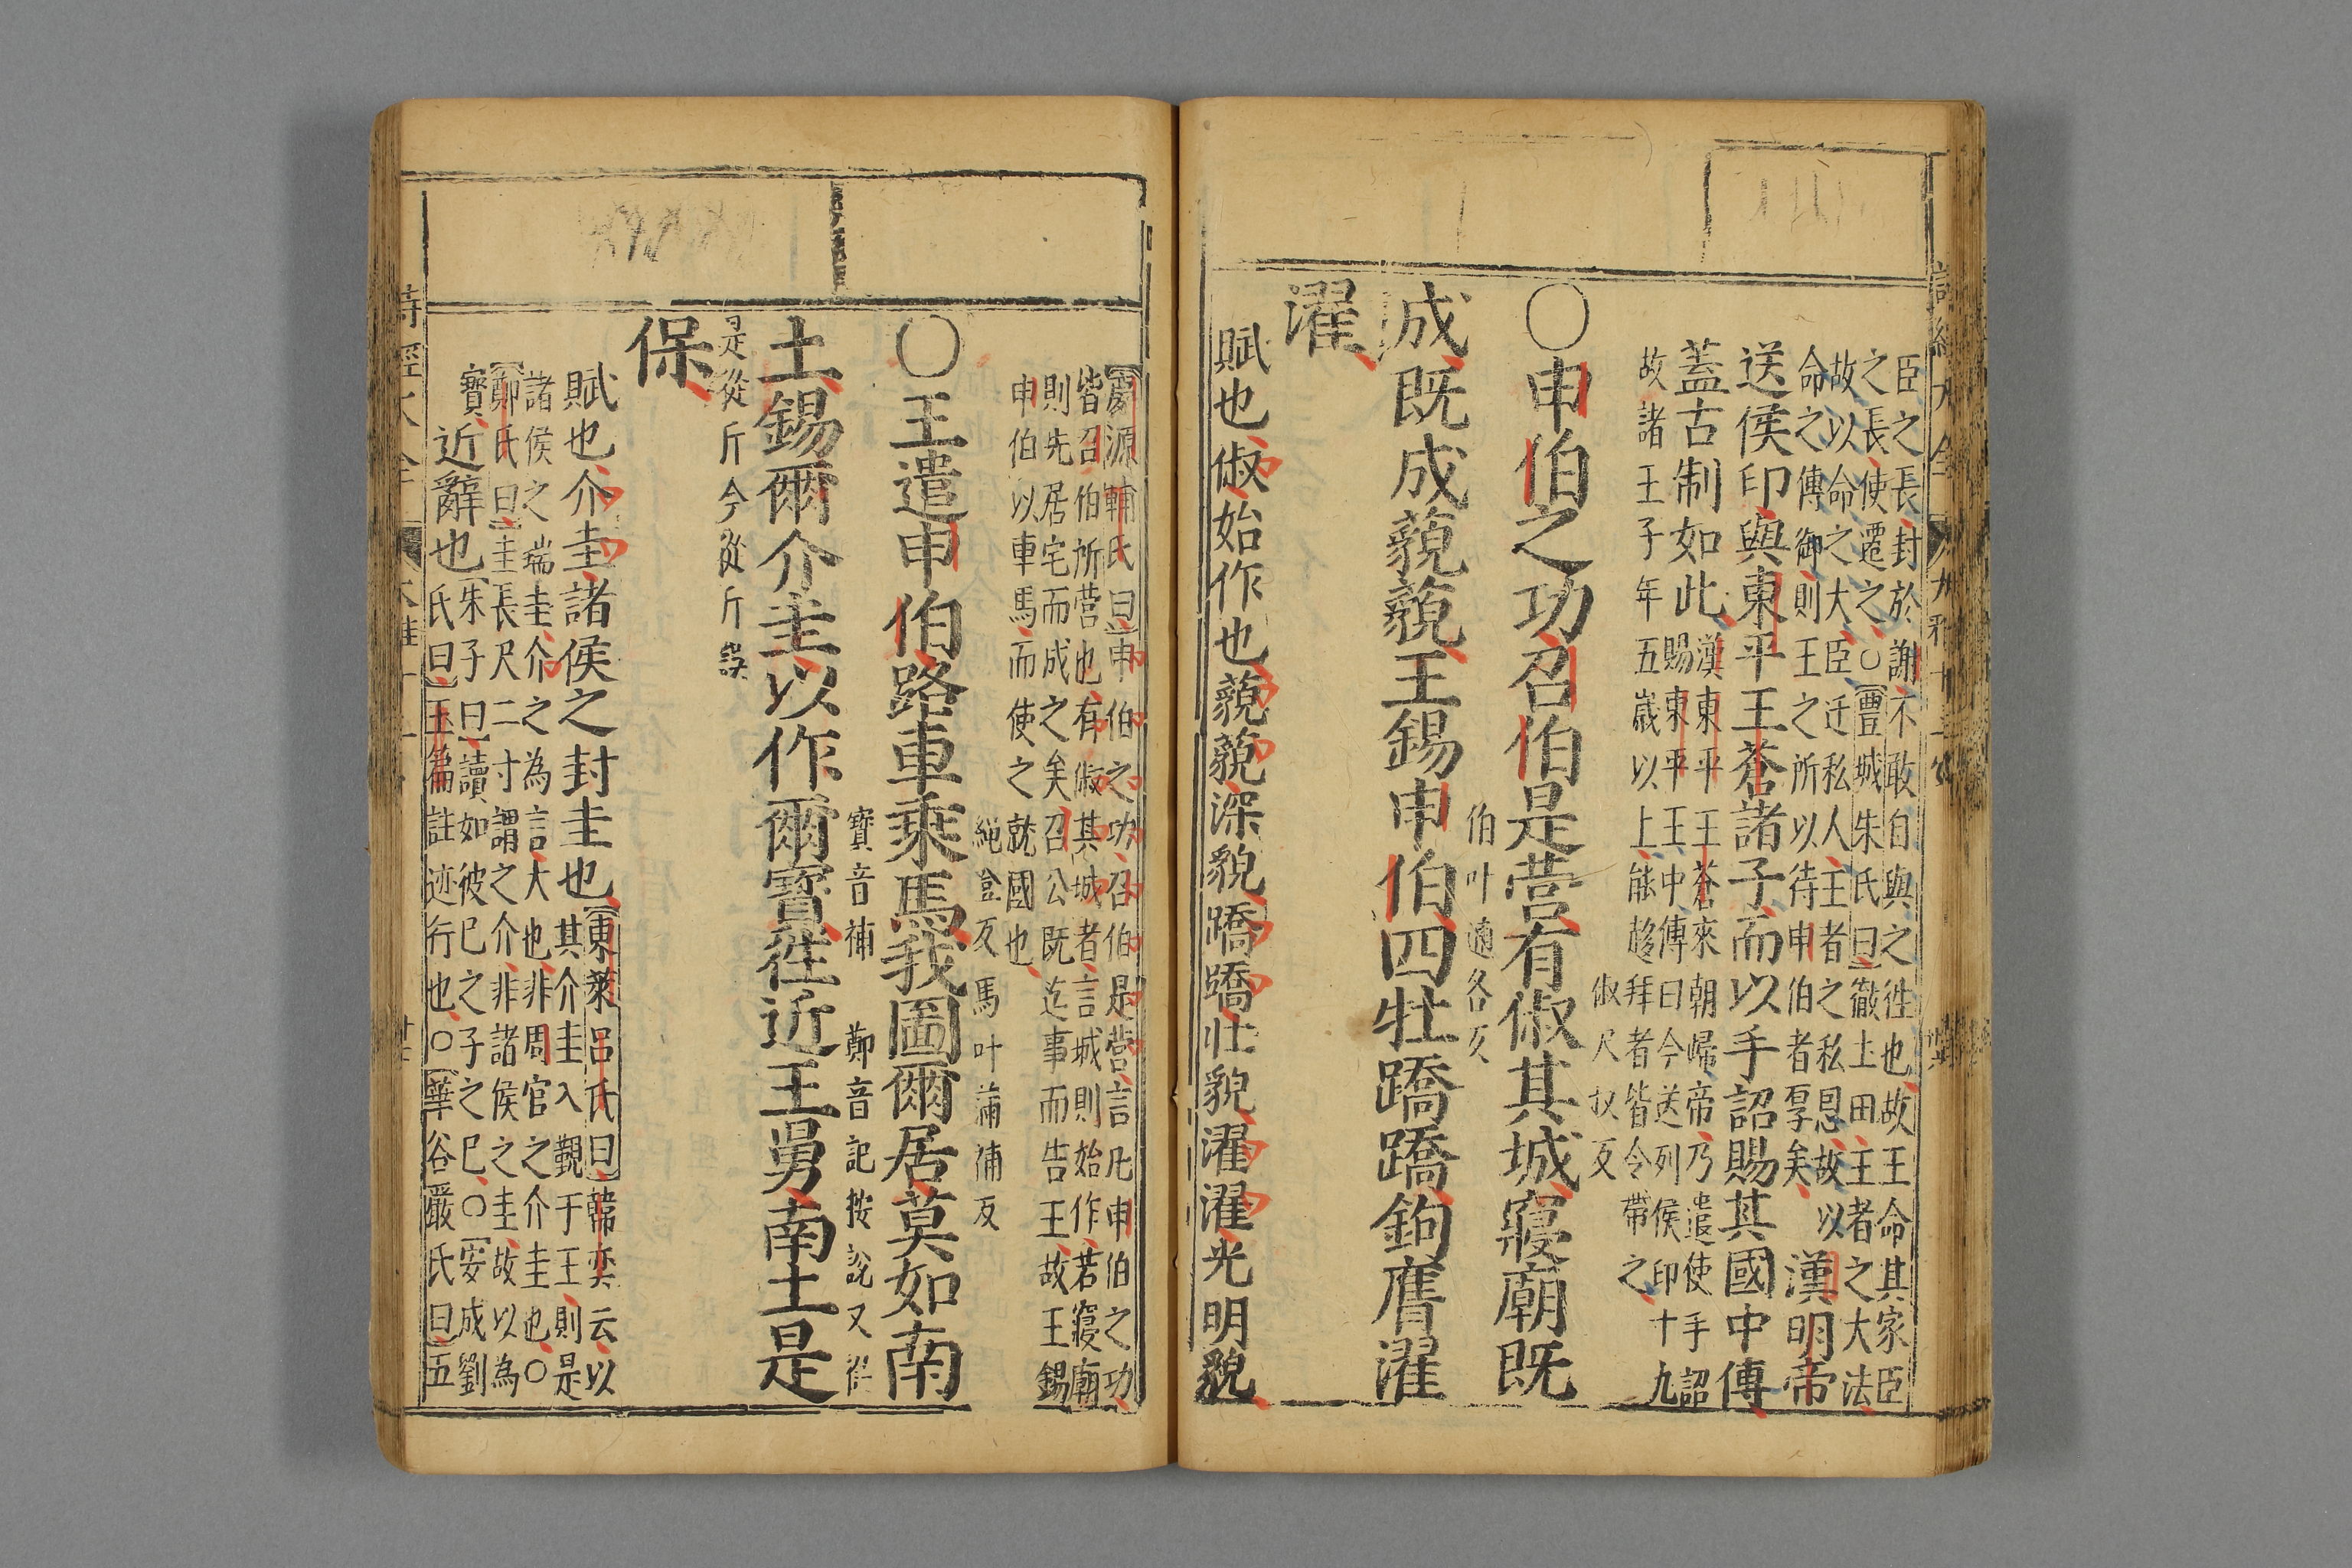 臣之長封於謝不敢自與之徃也故王命其家臣
之長使遷之○豐城朱氏曰徹土田主者之大法
故以命之大臣迁私人主者之私恩故以
命之傳御則王之所以待申伯者厚矣漢明帝
送侯印與東平王蒼諸子而以手詔賜其國中傳
蓋古制如此漢東平王蒼來朝歸帝乃遣使手詔
賜東平王中傳曰今送列侯印十九
故諸王子年五歲以上能趍拜者皆令帶之
俶尺叔反
○申伯之功召伯是營有俶其城寢廟既
伯叶逋各反
成既成藐藐王錫申伯四牡蹻蹻鉤膺濯
濯
賦也俶始作也藐藐深貌蹻蹻壯貌濯濯光明貌
慶源輔氏曰申伯之功召伯是營言凡申伯之功
皆召伯所營也有俶其城者言城則始作若寢廟
則先居宅而成之矣召公既迄事而告王故王錫
申伯以車馬而使之就國也
繩證反 馬叶蒲浦反
○王遣申伯路車乘馬我圖爾居莫如南
寶音補 鄭音記按說文從
土錫爾介圭以作爾寶徃近王舅南土是
是從斤今從斤誤
保
賦也介圭諸侯之封圭也東萊呂氏曰韓奕云以
其介圭入覲于王則是
諸侯之瑞圭介之為言大也非周官之介圭也○
鄭氏曰圭長尺二寸謂之介非諸侯之圭故以為
寶近辭也朱子曰讀如彼已之子之已○安成劉
氏曰玉篇註迹行也○華谷嚴氏曰五
詩經大全 大雅十